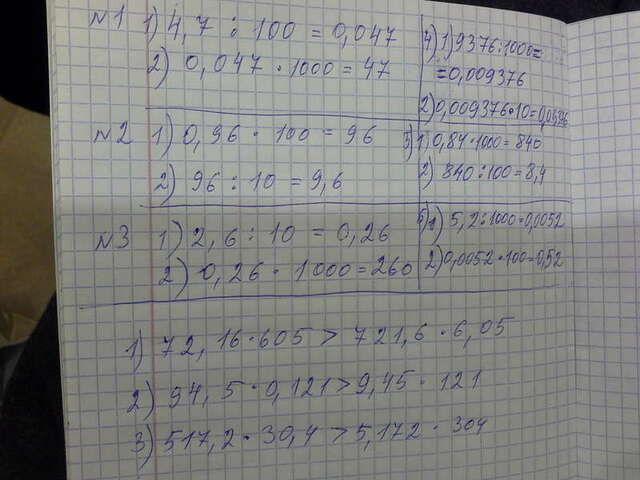 №1 1) 4,7 : 100 = 0,047
2) 0,047 · 1000 = 47
4) 1) 9376 : 1000 =
= 0,009376
2) 0,009376 · 10 = 0,09376
№2 1) 0,96 · 100 = 96
2) 96 : 10 = 9,6
5) 1) 0,84 · 1000 = 840
2) 840 : 100 = 8,4
№3 1) 2,6 : 10 = 0,26
2) 0,26 · 1000 = 260
6) 1) 5,2 : 1000 = 0,0052
2) 0,0052 · 100 = 0,52
1) 72,16 · 605 > 721,6 · 6,05
2) 94,5 · 0,121 > 9,45 · 121
3) 517,2 · 30,4 > 5,172 · 304